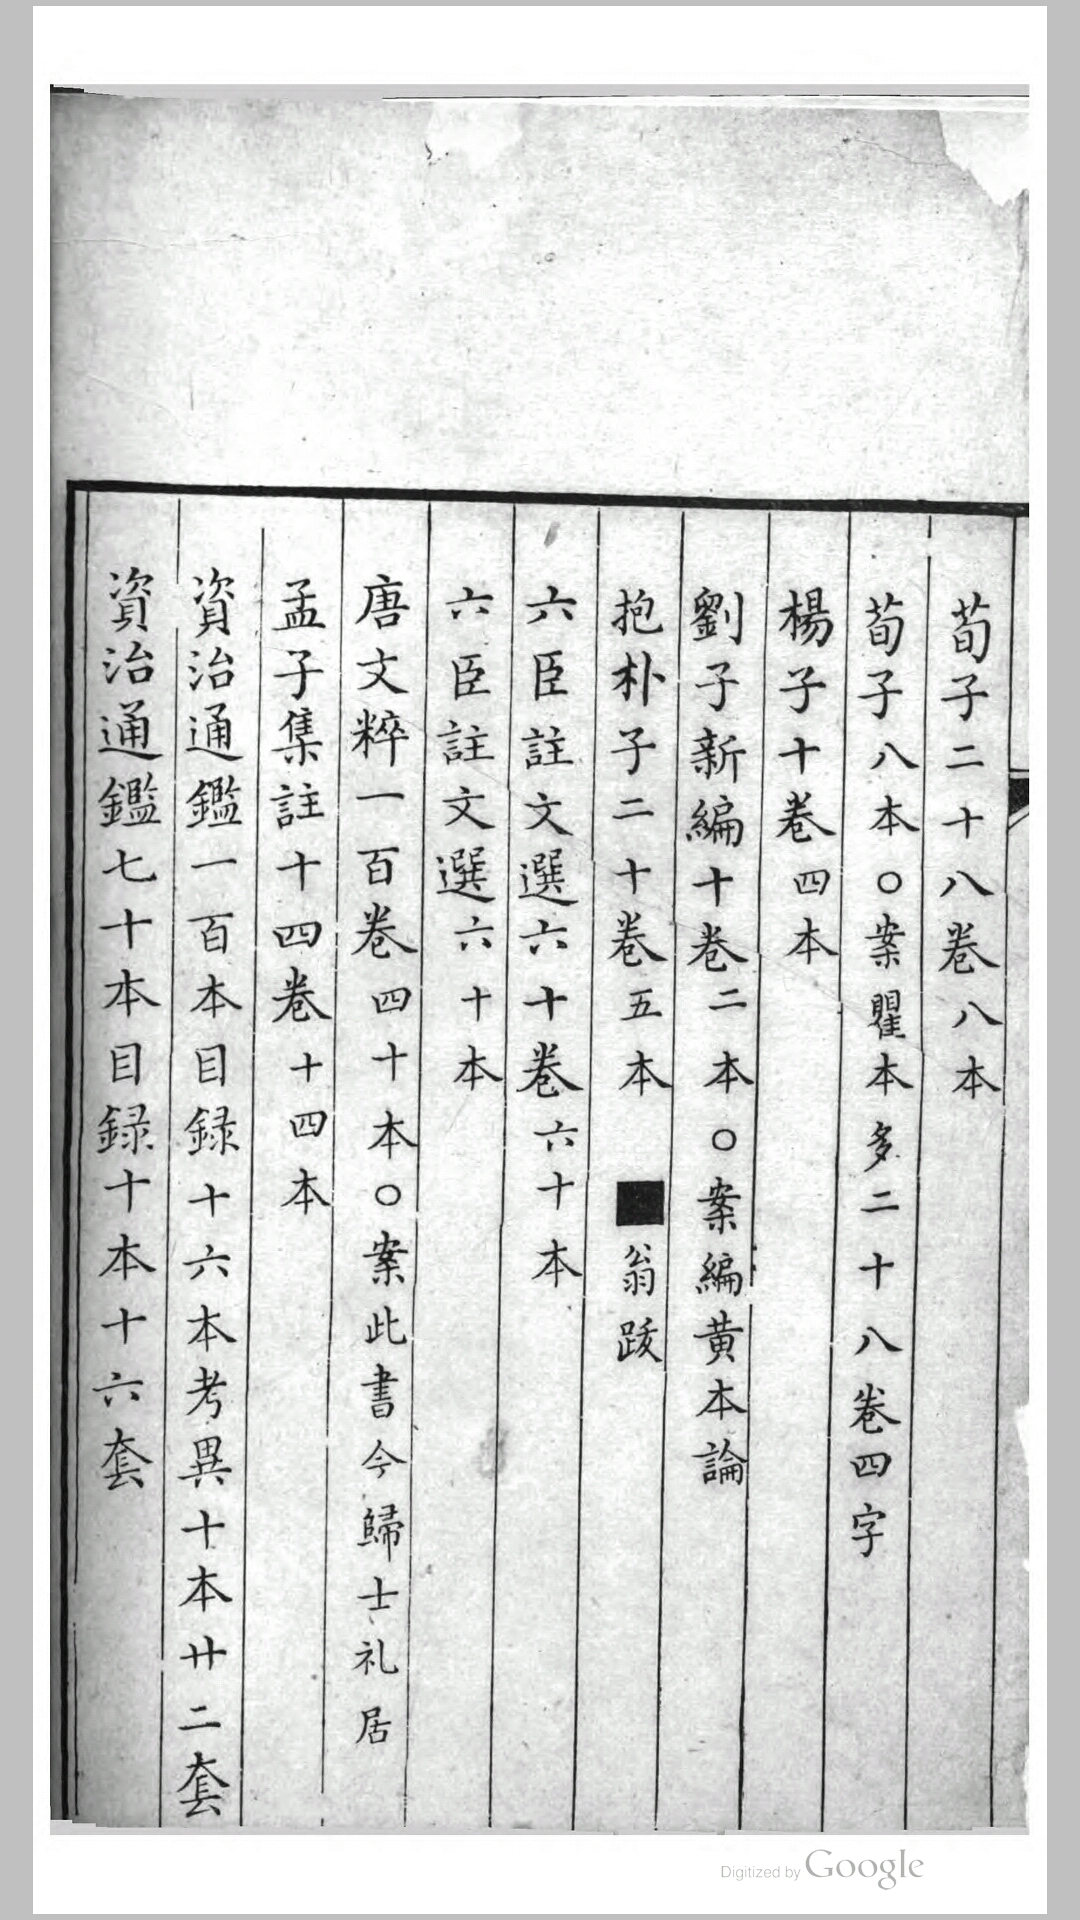 荀子二十八卷八本
荀子八本○案瞿本多二十八卷四字
楊子十卷四本
劉子新編十卷二本○案編黄本論
抱朴子二十卷五本■翁跋
六臣註文選六十卷六十本
六臣註文選六十本
唐文粹一百卷四十本○案此書今歸士礼居
孟子集註十四卷十四本
資治通鑑一百本目録十六本考異十本廿二套
資治通鑑七十本目録十本十六套
Digitized by Google